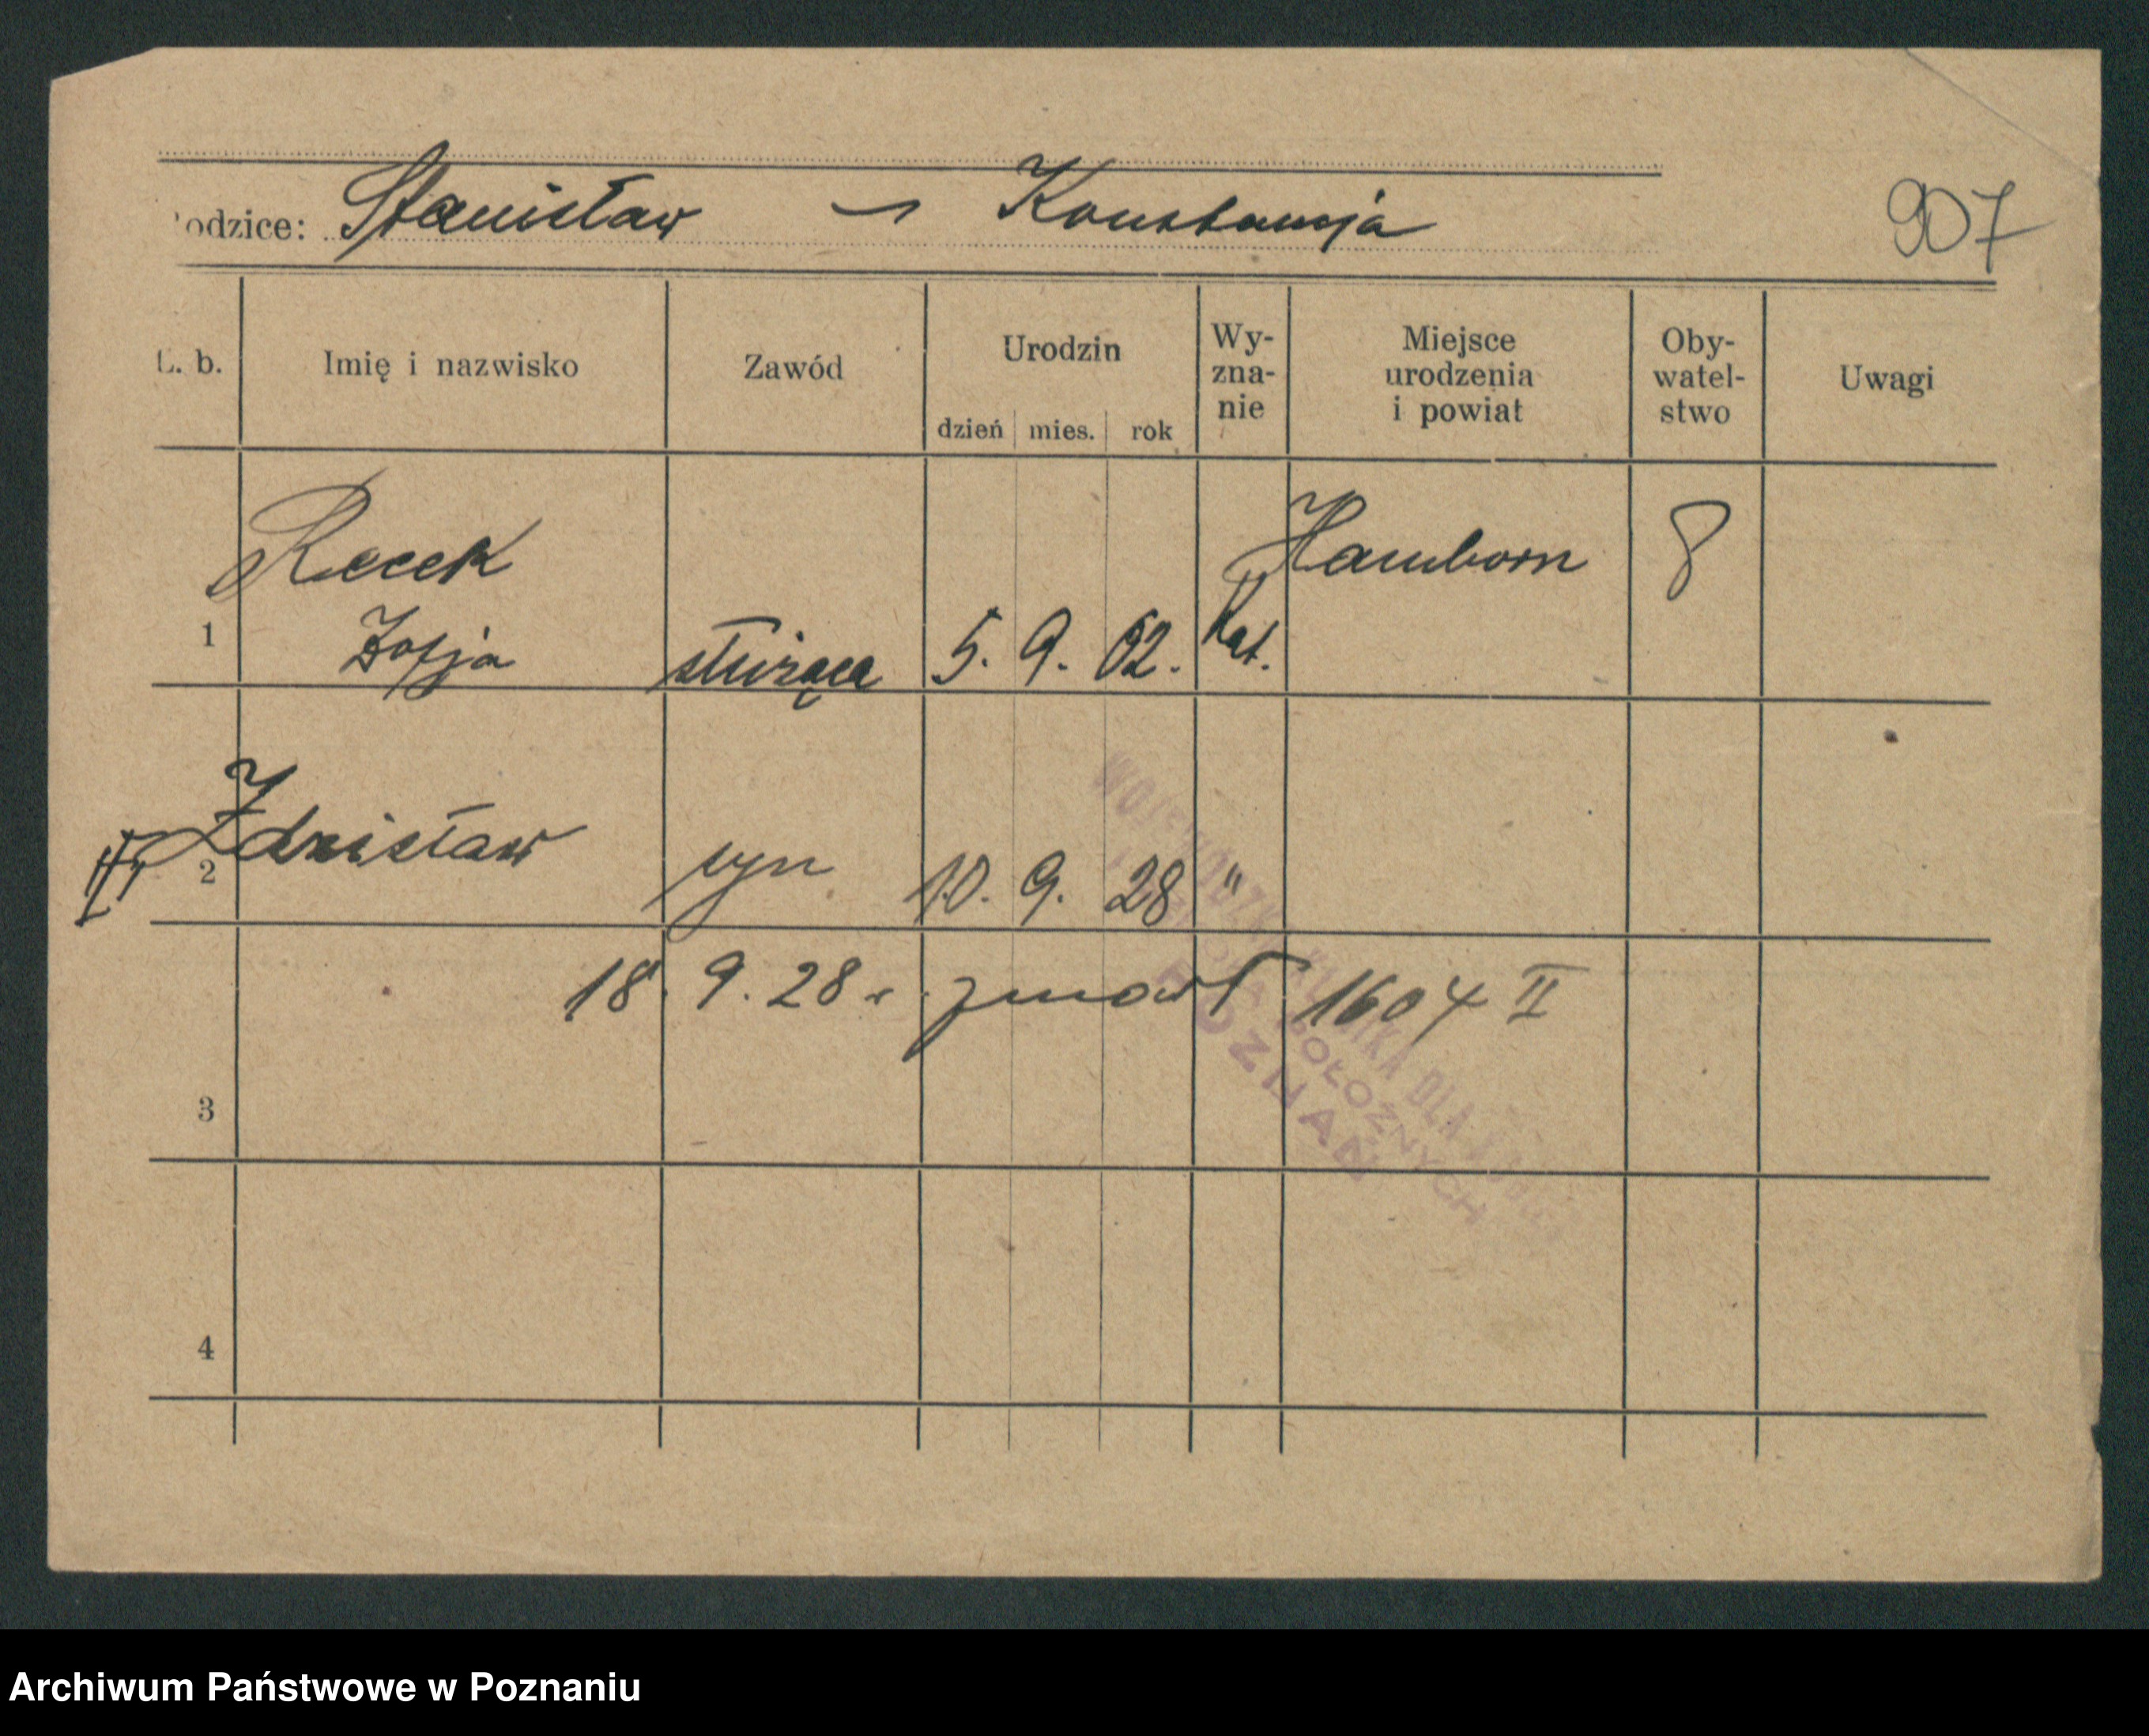 odzice: Stanisław – Konstancja
907
L. b. Imię i nazwisko Zawód Urodzin Wy- Miejsce Oby- Uwagi
zna- urodzenia watel-
nie i powiat stwo
dzień mies. rok
Recek Hamborn 8
1 Zofja służąca 5. 9. 02. Kat.
2 Zdzisław syn 10. 9. 28 "
18. 9. 28 zmarł 1604 II
3
4
WOJEWÓDZKA KLINIKA DLA
POŁOŻNYCH
POZNAŃ
Archiwum Państwowe w Poznaniu